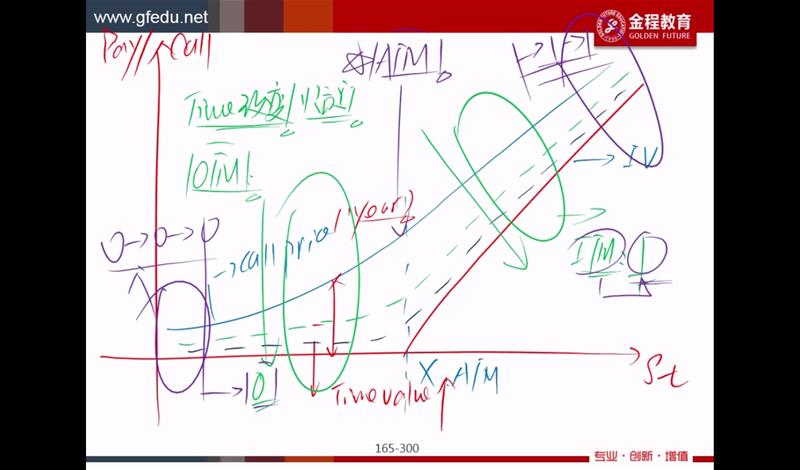 www.gfedu.net
金程教育
GOLDEN FUTURE
Pay// Call
ATM
1→1→1
Time
OTM
IV
0→0→0
→call price (1 year)
ITM: 1
→0
Time value
X
ATM
St
165-300
专业·创新·增值